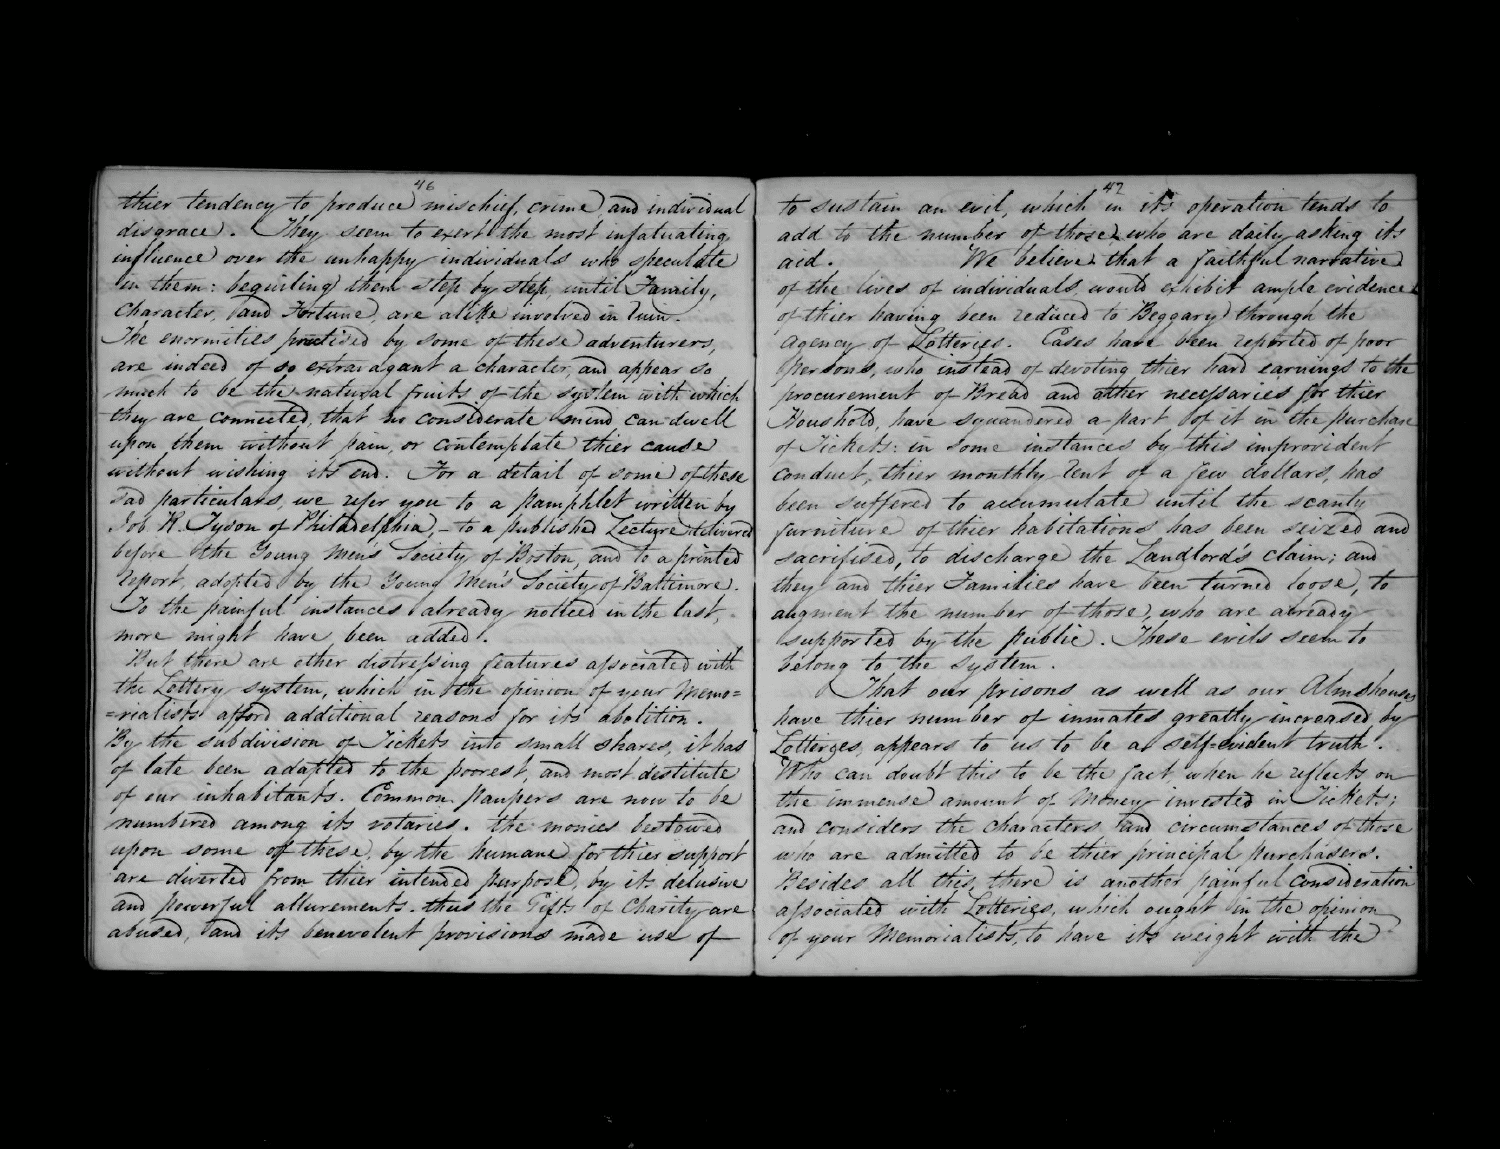 46
thier tendency to produce mischief, crime, and individual
disgrace. They seem to exert the most infatuating
influence over the unhappy individuals who speculate
in them: beguiling them step by step, until Family,
Character, and Fortune, are alike involved in ruin.
The enormities practised by some of these adventurers,
are indeed of so extravagant a character, and appear so
much to be the natural fruits of the system with which
they are connected, that no considerate mind can dwell
upon them without pain, or contemplate thier cause
without wishing its end. For a detail of some of these
sad particulars, we refer you to a pamphlet written by
Job R. Tyson of Philadelphia,- to a published Lecture delivered
before the Young Men's Society of Boston, and to a printed
report, adopted by the Young Men's Society of Baltimore.
To the painful instances already noticed in the last,
more might have been added.
But there are other distressing features associated with
the Lottery system, which in the opinion of your Memo=
=rialists afford additional reasons for its abolition.
By the subdivision of Tickets into small shares, it has
of late been adapted to the poorest, and most destitute
of our inhabitants. Common paupers are now to be
numbered among its votaries. the monies bestowed
upon some of these, by the humane for thier support
are diverted from thier intended purpose, by its delusive
and powerful allurements. thus the Gifts of Charity are
abused, and its benevolent provisions made use of
47
to sustain an evil, which in its operation tends to
add to the number of those, who are daily asking its
aid. We believe that a faithful narrative
of the lives of individuals would exhibit ample evidence
of thier having been reduced to Beggary through the
agency of Lotteries. Cases have been reported of poor
persons, who instead of devoting thier hard earnings to the
procurement of Bread and other necessaries for thier
Houshold, have squandered a part of it in the purchase
of Tickets: in some instances by this improvident
conduct, thier monthly rent of a few dollars, has
been suffered to accumulate until the scanty
furniture of thier habitations has been seized and
sacrifised, to discharge the Landlord's claim; and
they and thier Families have been turned loose, to
augment the number of those, who are already
supported by the public. These evils seem to
belong to the system.
That our prisons as well as our Almshouses
have thier number of inmates greatly increased, by
Lotteries, appears to us to be a self=evident truth.
Who can doubt this to be the fact, when he reflects on
the immense amount of Money invested in Tickets;
and considers the characters and circumstances of those
who are admitted to be thier principal purchasers.
Besides all this, there is another painful consideration
associated with Lotteries, which ought in the opinion
of your Memorialists, to have its weight with the